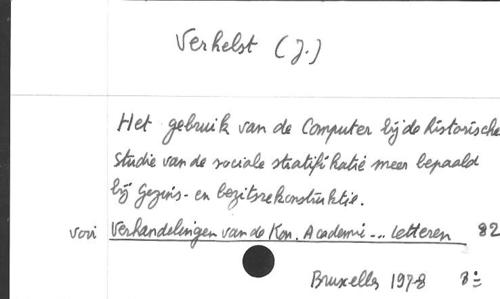 Verhelst (J.)
Het gebruik van de Computer bij de historische
studie van de sociale stratifikatie meer bepaald
bij gezins- en bezitsrekonstruktie.
voir Verhandelingen van de Kon. Academi ... Letteren 82
Bruxelles 1978 8º